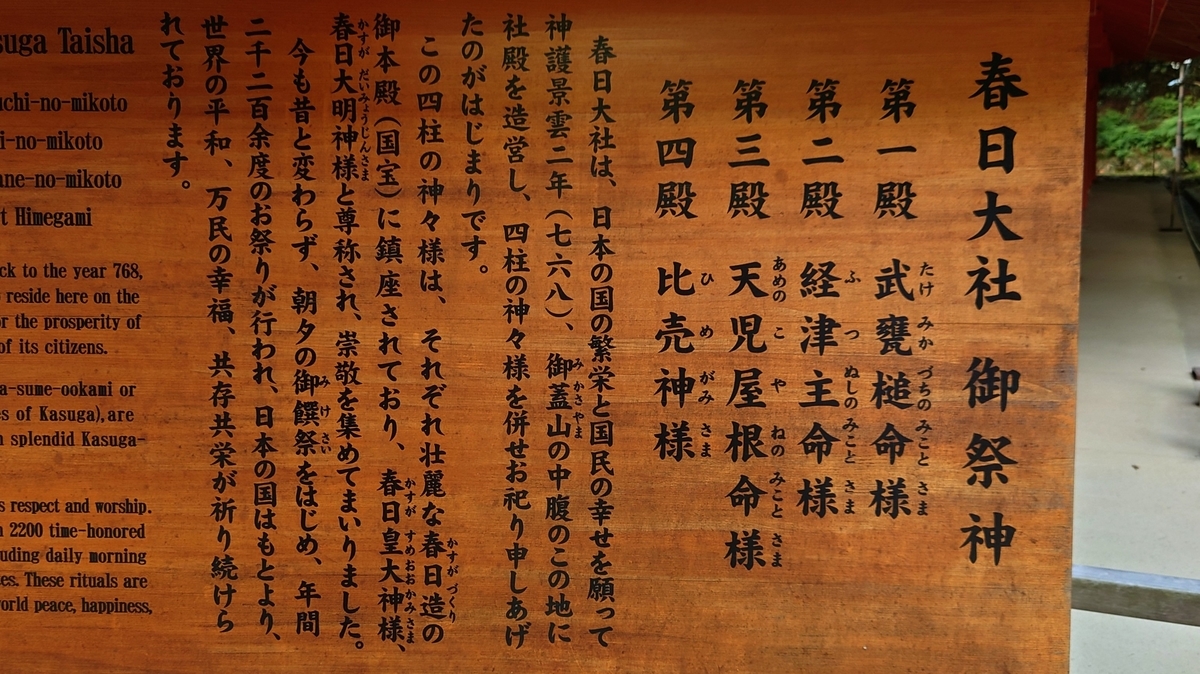 春日大社 御祭神
第一殿 武甕槌命様
たけ みか づちの みこと さま
第二殿 経津主命様
ふ つ ぬしの みこと さま
第三殿 天児屋根命様
あめの こ や ねの みこと さま
第四殿 比売神様
ひ め がみ さま
春日大社は、日本の国の繁栄と国民の幸せを願って
神護景雲二年(七六八)、御蓋山の中腹のこの地に
み かさ やま
社殿を造営し、四柱の神々様を併せお祀り申しあげ
たのがはじまりです。
この四柱の神々様は、それぞれ壮麗な春日造の
かすが づくり
御本殿(国宝)に鎮座されており、春日皇大神様、
かすが すめおおかみ さま
春日大明神様と尊称され、崇敬を集めてまいりました。
かすが だいみょうじん さま
今も昔と変わらず、朝夕の御饌祭をはじめ、年間
み け さい
二千二百余度のお祭りが行われ、日本の国はもとより、
世界の平和、万民の幸福、共存共栄が祈り続けら
れております。
suga Taisha
uchi-no-mikoto
i-no-mikoto
ane-no-mikoto
t Himegami
ck to the year 768,
reside here on the
or the prosperity of
of its citizens.
a-sume-ookami or
es of Kasuga), are
n splendid Kasuga-
s respect and worship.
n 2200 time-honored
uding daily morning
es. These rituals are
world peace, happiness,